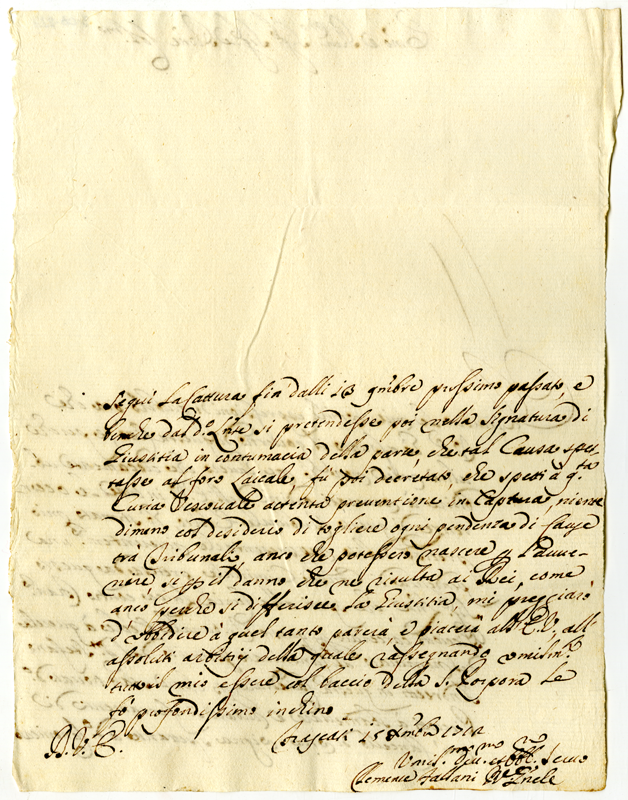 Seguì la cattura fin dalli 13 9mbre prossimo passato, e
benche dal d.o Snte si pretendesse poi nella Signatura di
Giustitia in contumacia della parte, che tal Causa spet-
tasse al foro Laicale, fù poi decretato, che spetti à q.ta
Curia Vescovale attenta preventione in Captura, niente
dimeno col desiderio di togliere ogni pendenza di Cause
trà Tribunali, anco che potessero nascere p l'avve-
nire si p il danno che ne risulta ai Rei, come
anco perche si differisce la Giustitia, mi preggiarò
d'obbidire à quel tanto parerà, e piacerà all' E.V. all'
assoluti arbitrij della quale rassegnando umilm.te
tutto il mio essere col baccio della S. Porpora le
fò profondissimo inchino
Frascati 15 Xmbre 1712
Umil.mo Dev.mo et Obbl.mo Servo
Clemente